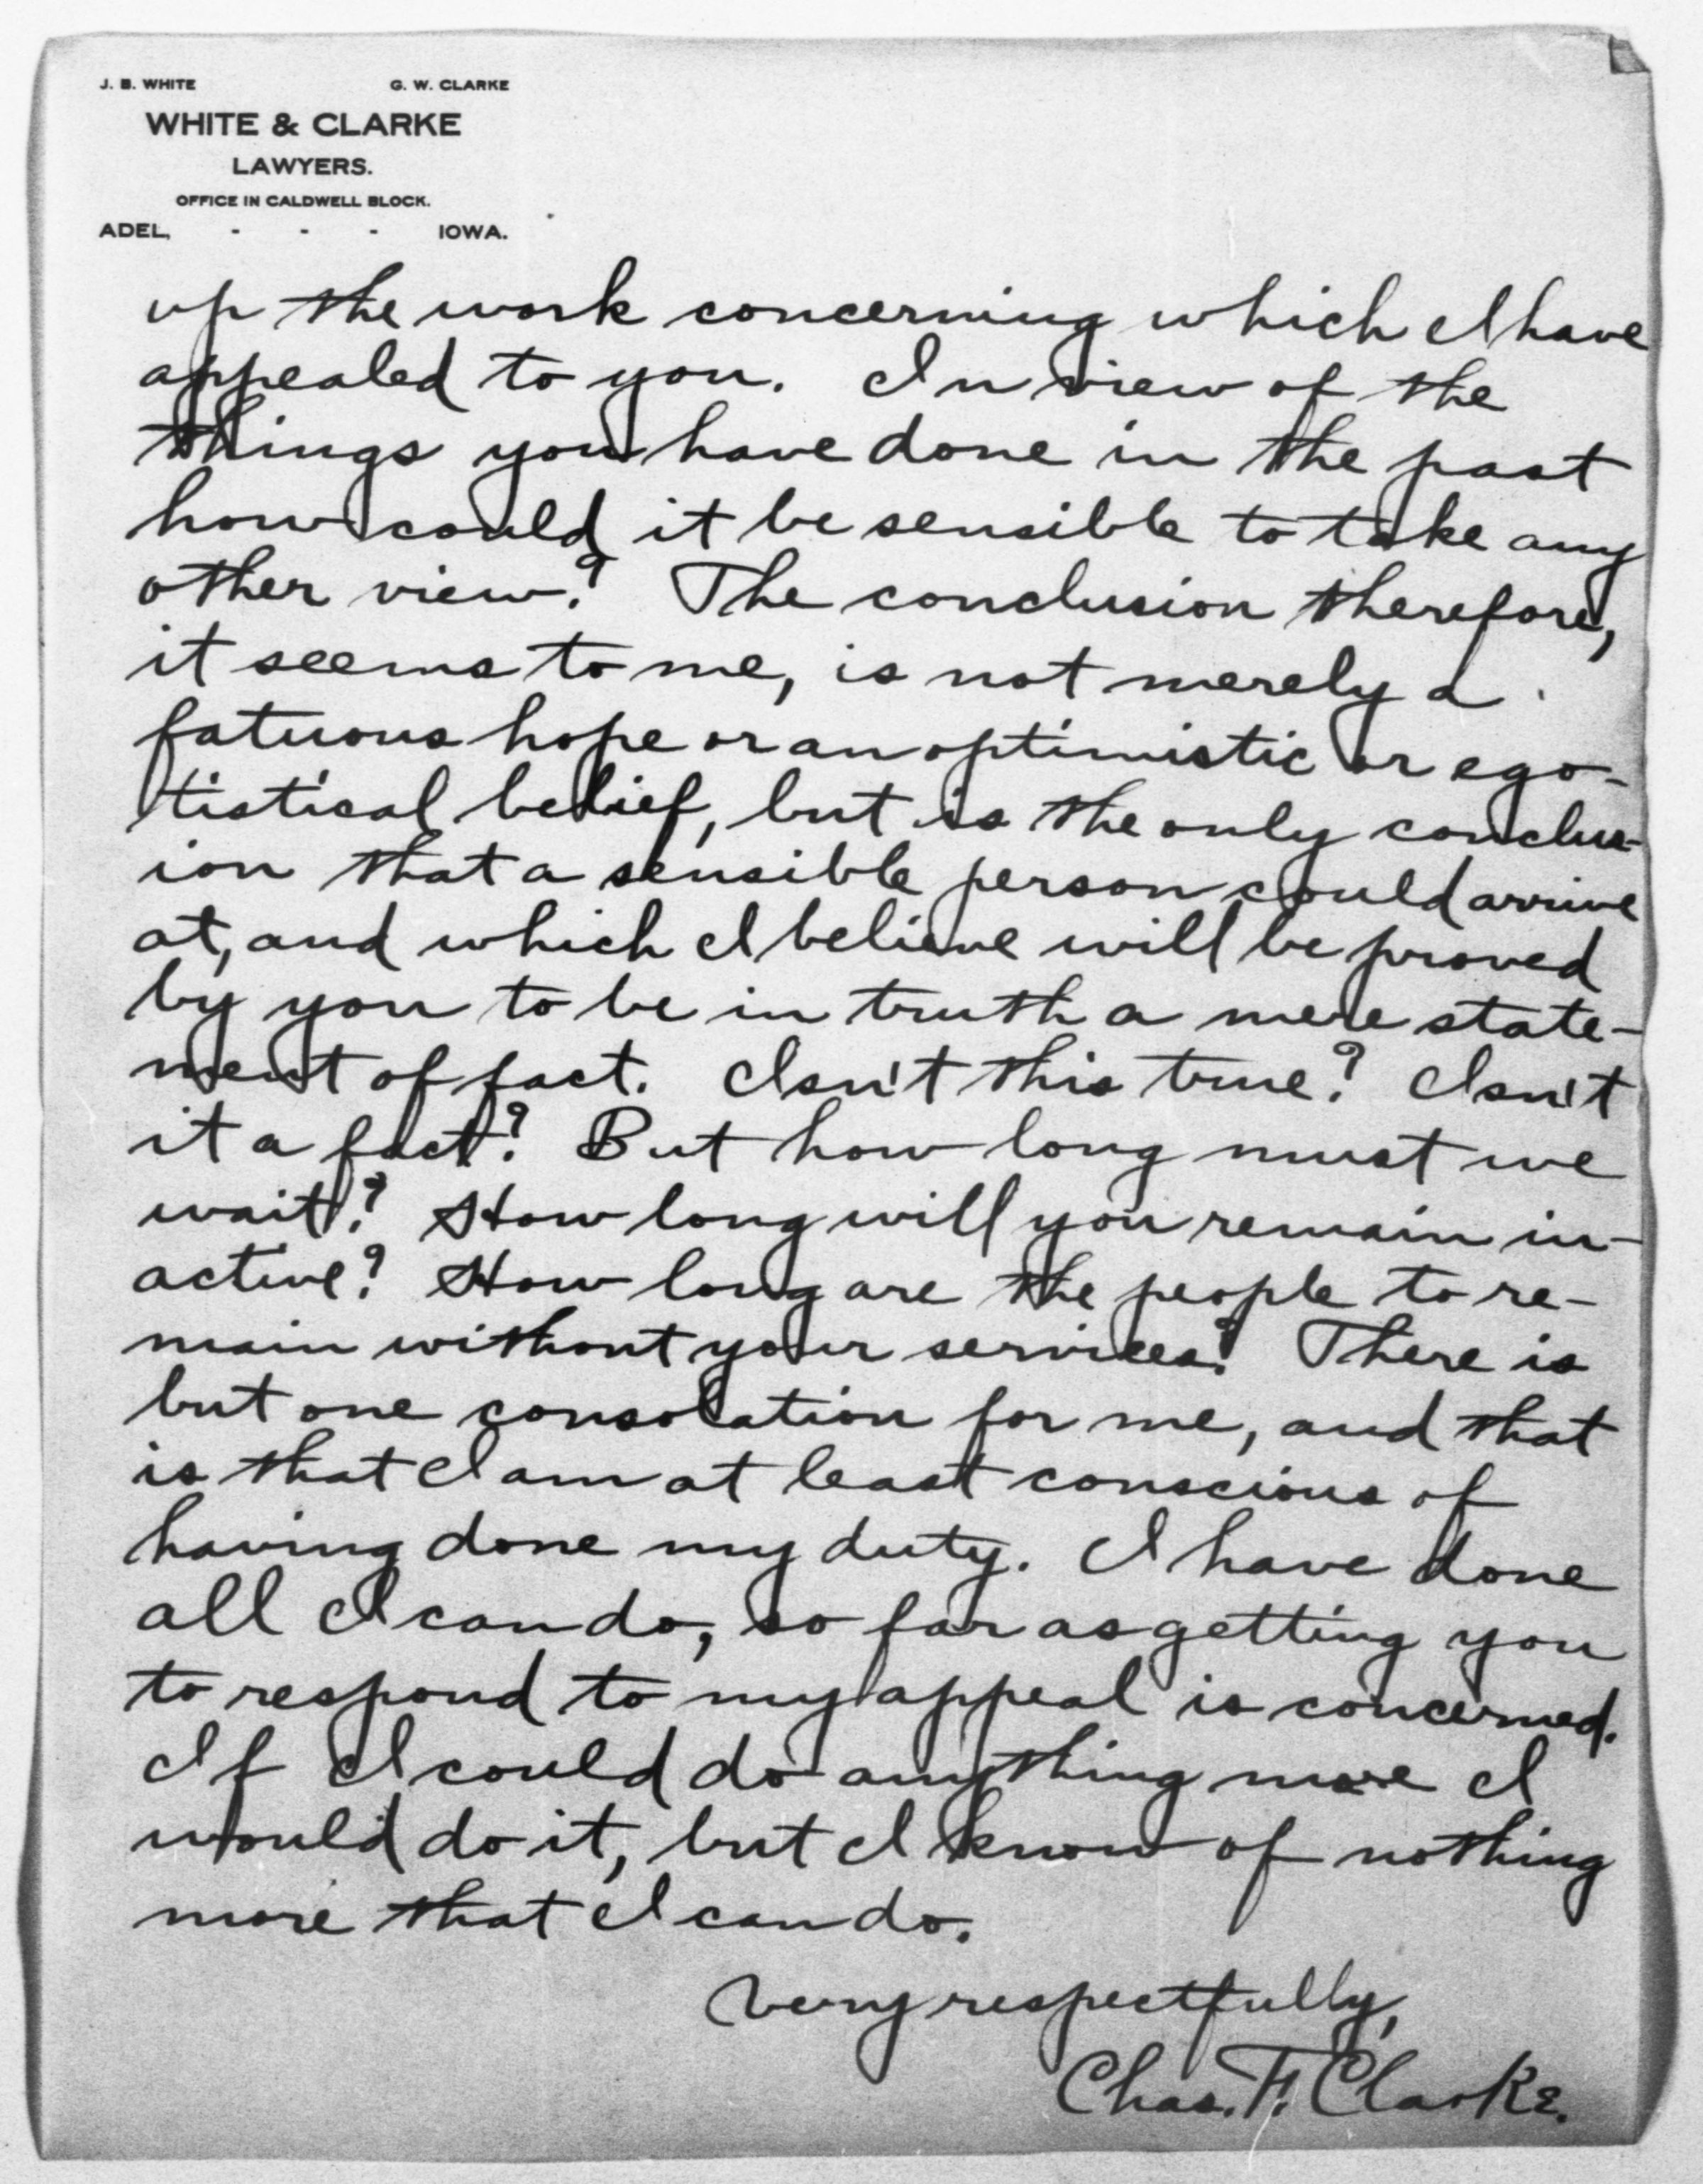 J. B. WHITE G. W. CLARKE
WHITE & CLARKE
LAWYERS.
OFFICE IN CALDWELL BLOCK.
ADEL, - - - IOWA.
up the work concerning which I have
appealed to you. In view of the
things you have done in the past
how could it be sensible to take any
other view? The conclusion therefore,
it seems to me, is not merely a
fatuous hope or an optimistic or ego-
tistical belief, but is the only conclus-
ion that a sensible person could arrive
at, and which I believe will be proved
by you to be in truth a mere state-
ment of fact. Isn't this true? Isn't
it a fact? But how long must we
wait? How long will you remain in-
active? How long are the people to re-
main without your services? There is
but one consolation for me, and that
is that I am at least conscious of
having done my duty. I have done
all I can do, so far as getting you
to respond to my appeal is concerned.
If I could do anything more I
would do it, but I know of nothing
more that I can do.
Very respectfully,
Chas. F. Clarke.